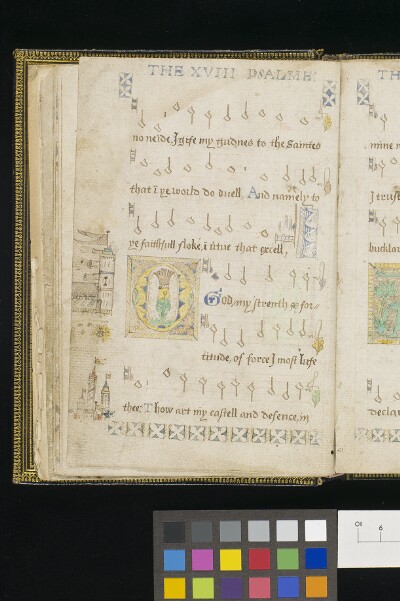 THE XVIII PSALME
no neide I gife my gudnes to the Sainteis
that ī ye world do duell, And namely to
ye faithfull floke, ī uitue that excell,
God, my strenth & for-
titude, of force I most lufe
thee: Thow art my castell and defence, in
TH
mine
I trust
bucklar
Declar